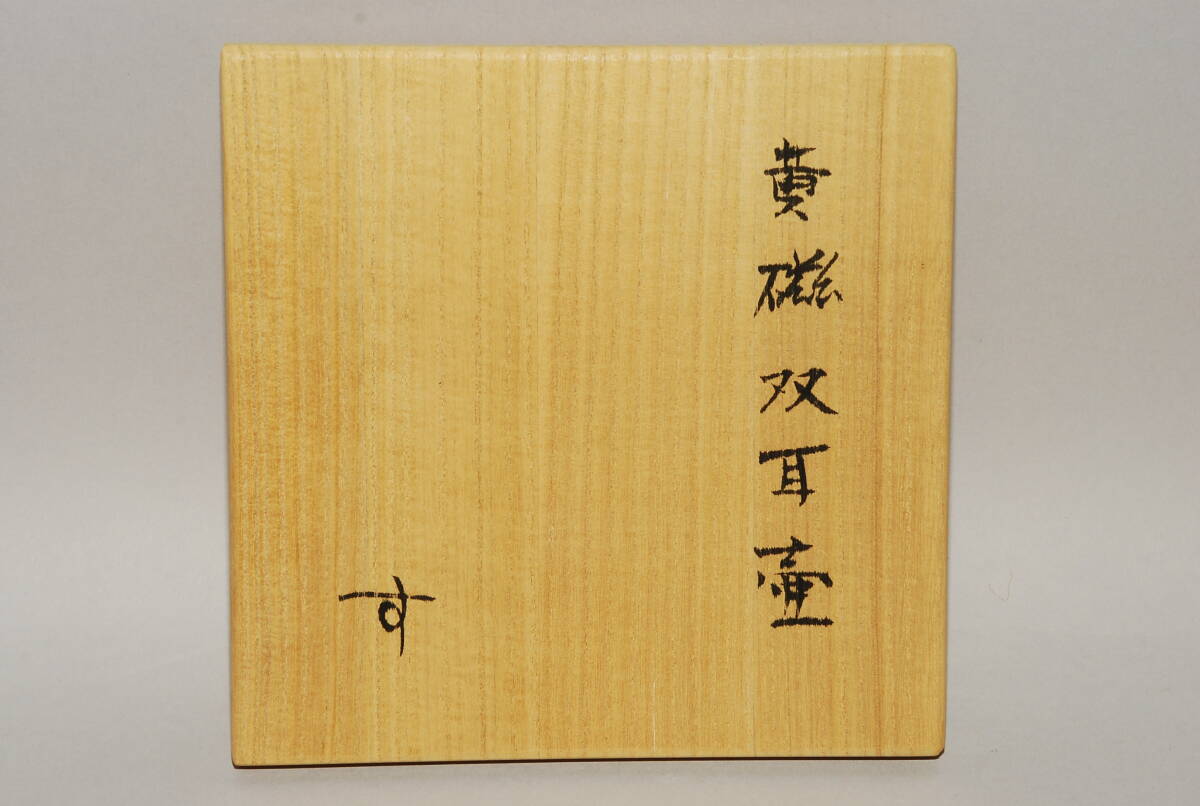 黄磁双耳壷
す